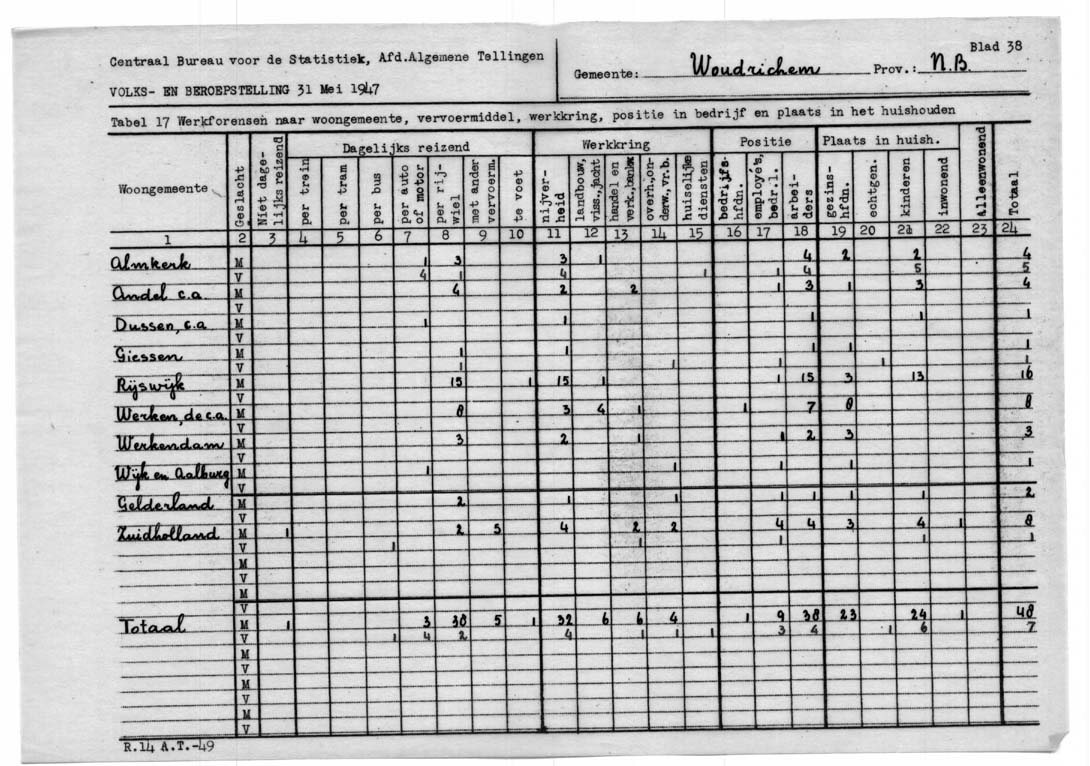 Blad 38
Centraal Bureau voor de Statistiek, Afd.Algemene Tellingen
Gemeente: Woudrichem Prov.: N.B.
VOLKS- EN BEROEPSTELLING 31 Mei 1947
Tabel 17 Werkforensen naar woongemeente, vervoermiddel, werkkring, positie in bedrijf en plaats in het huishouden
Dagelijks reizend Werkkring Positie Plaats in huish.
Woongemeente Geslacht Niet dage-lijks reizend per trein per tram per bus per auto of motor per rij-wiel met ander vervoerm. te voet nijver-heid landbouw, viss.,jacht handel en verk.,bankw overh.,on-derw.,vr.b. huiselijke diensten bedrijfs-hfdn. employé's, bedr.l. arbei-ders gezins-hfdn. echtgen. kinderen inwonend Alleenwonend Totaal
1 2 3 4 5 6 7 8 9 10 11 12 13 14 15 16 17 18 19 20 21 22 23 24
Almkerk M 1 3 3 1 4 2 2 4
V 4 1 4 1 1 4 5 5
Andel c.a. M 4 2 2 1 3 1 3 4
V
Dussen, c.a M 1 1 1 1 1
V
Giessen M 1 1 1 1 1
V 1 1 1 1 1
Rijswijk M 15 1 15 1 1 15 3 13 16
V
Werken, de c.a. M 8 3 4 1 1 7 8 8
V
Werkendam M 3 2 1 1 2 3 3
V
Wijk en Aalburg M 1 1 1 1 1
V
Gelderland M 2 1 1 1 1 1 1 2
V
Zuidholland M 1 2 5 4 2 2 4 4 3 4 1 8
V 1 1 1 1 1
M
V
M
V
Totaal M 1 3 38 5 1 32 6 6 4 1 9 38 23 24 1 48
V 1 4 2 4 1 1 1 3 4 1 6 7
M
V
M
V
M
V
R.14 A.T.-49